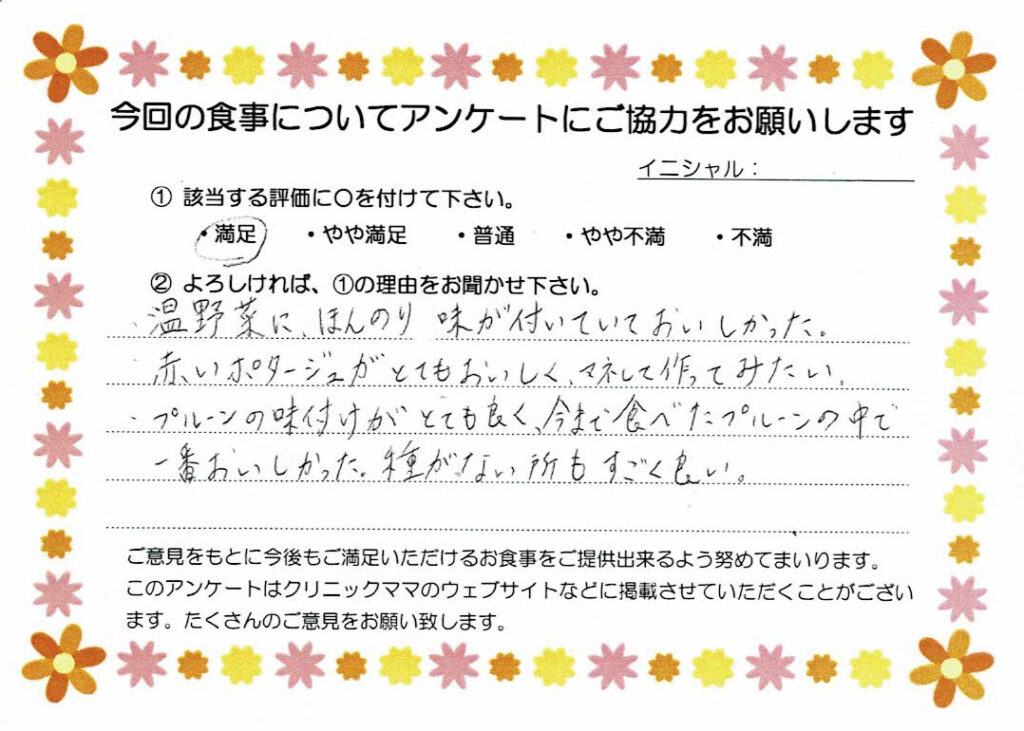 今回の食事についてアンケートにご協力をお願いします
イニシャル：
① 該当する評価に〇を付けて下さい。
・満足 ・やや満足 ・普通 ・やや不満 ・不満
② よろしければ、①の理由をお聞かせ下さい。
・温野菜に、ほんのり 味が付いていておいしかった。
赤いポタージュがとてもおいしく、マネして作ってみたい。
・プルーンの味付けがとても良く、今まで食べたプルーンの中で
一番おいしかった。種がない所もすごく良い。
ご意見をもとに今後もご満足いただけるお食事をご提供出来るよう努めてまいります。
このアンケートはクリニックママのウェブサイトなどに掲載させていただくことがござい
ます。たくさんのご意見をお願い致します。